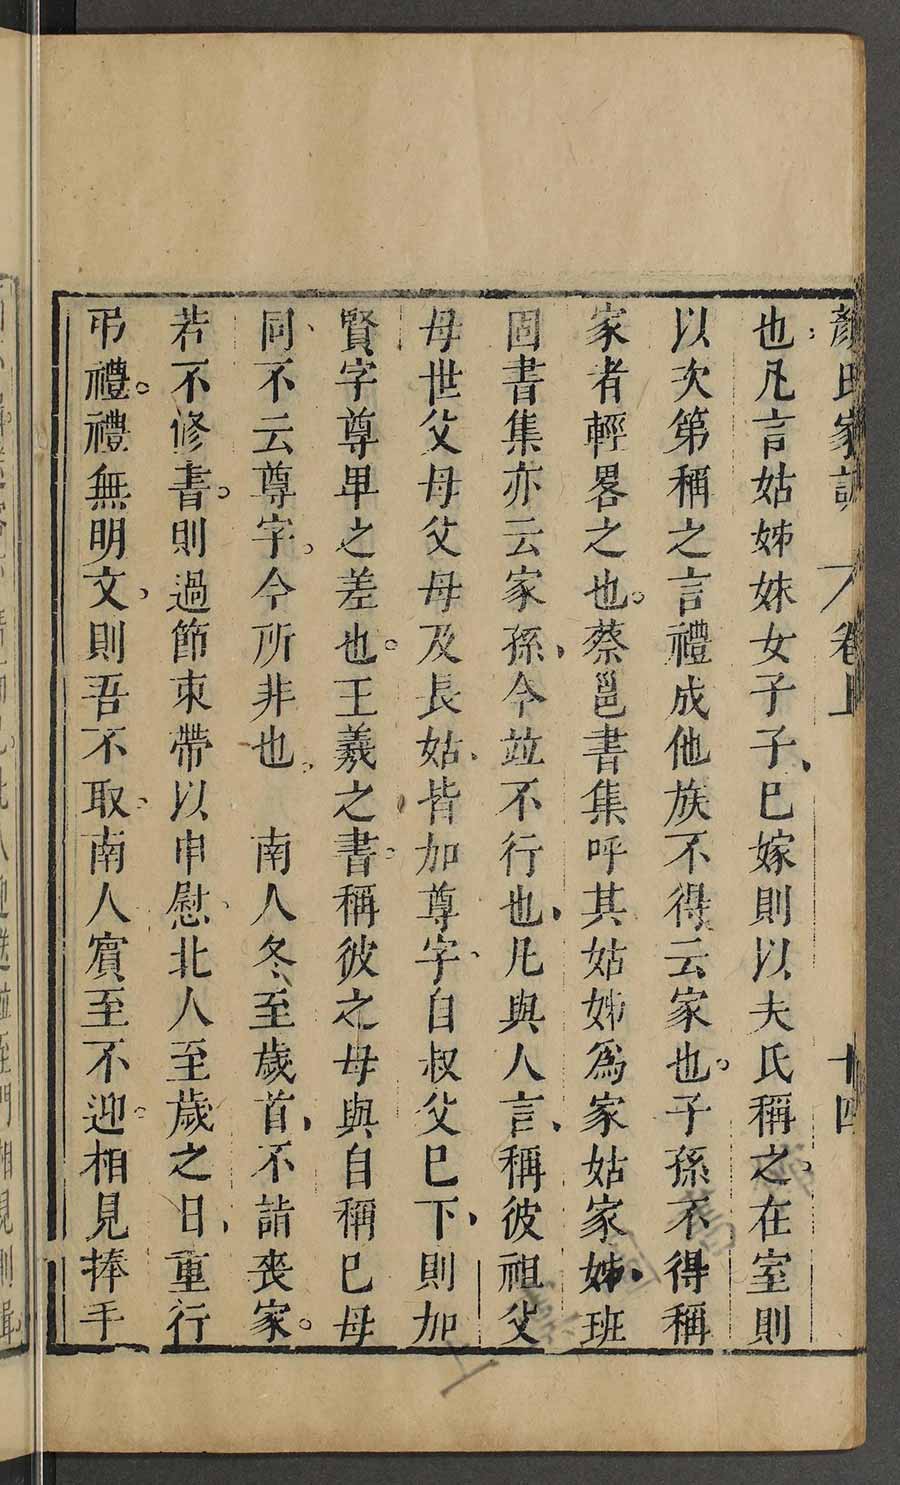 顏氏家訓 卷上 十四
也凡言姑姊妹女子子、已嫁則以夫氏稱之、在室則
以次第稱之言禮成他族不得云家也。子孫不得稱
家者輕畧之也。蔡邕書集呼其姑姊爲家姑家姊、班
固書集亦云家孫、今竝不行也、凡與人言、稱彼祖父
母世父母父母及長姑、皆加尊字、自叔父已下、則加
賢字尊卑之差也。王羲之書、稱彼之母與自稱已母
同、不云尊字。今所非也、　南人冬、至歲首、不詣喪家。
若不修書。則過節束帶以申慰、北人至歲之日、重行
弔禮。禮無明文、則吾不取、南人賓至不迎、相見捧手